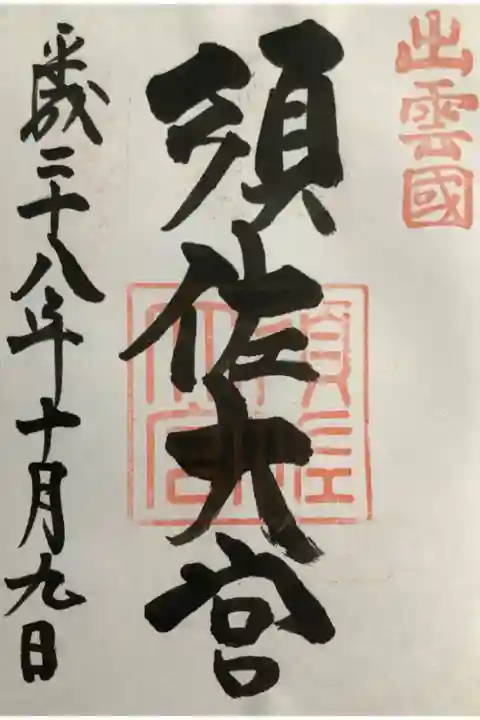 出雲國
須佐大宮
須佐
大宮
平成二十八年十月九日